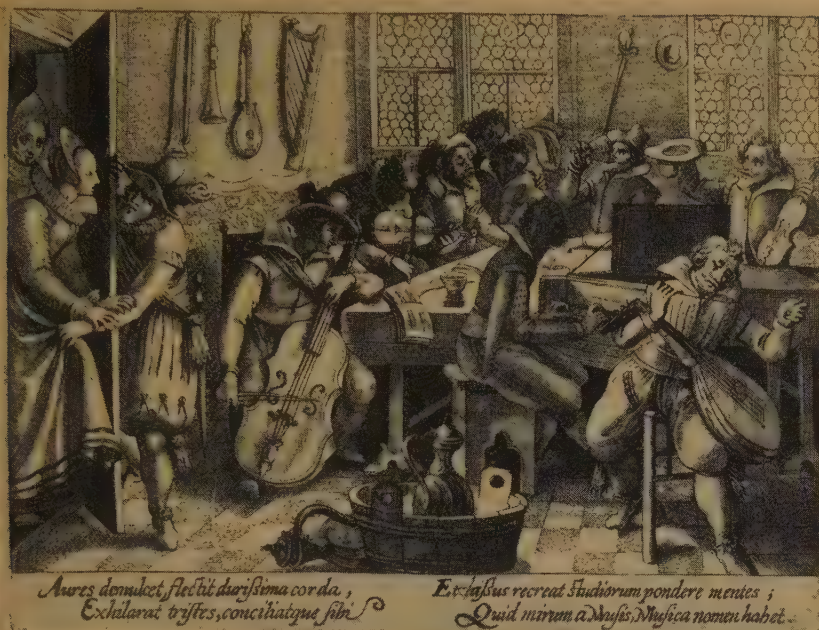 Aures demulcet, flectit durissima corda,
Exhilarat tristes, conciliatque sibi
Et lassus recreat studiorum pondere mentes;
Quid mirum a Musis, Musica nomen habet.